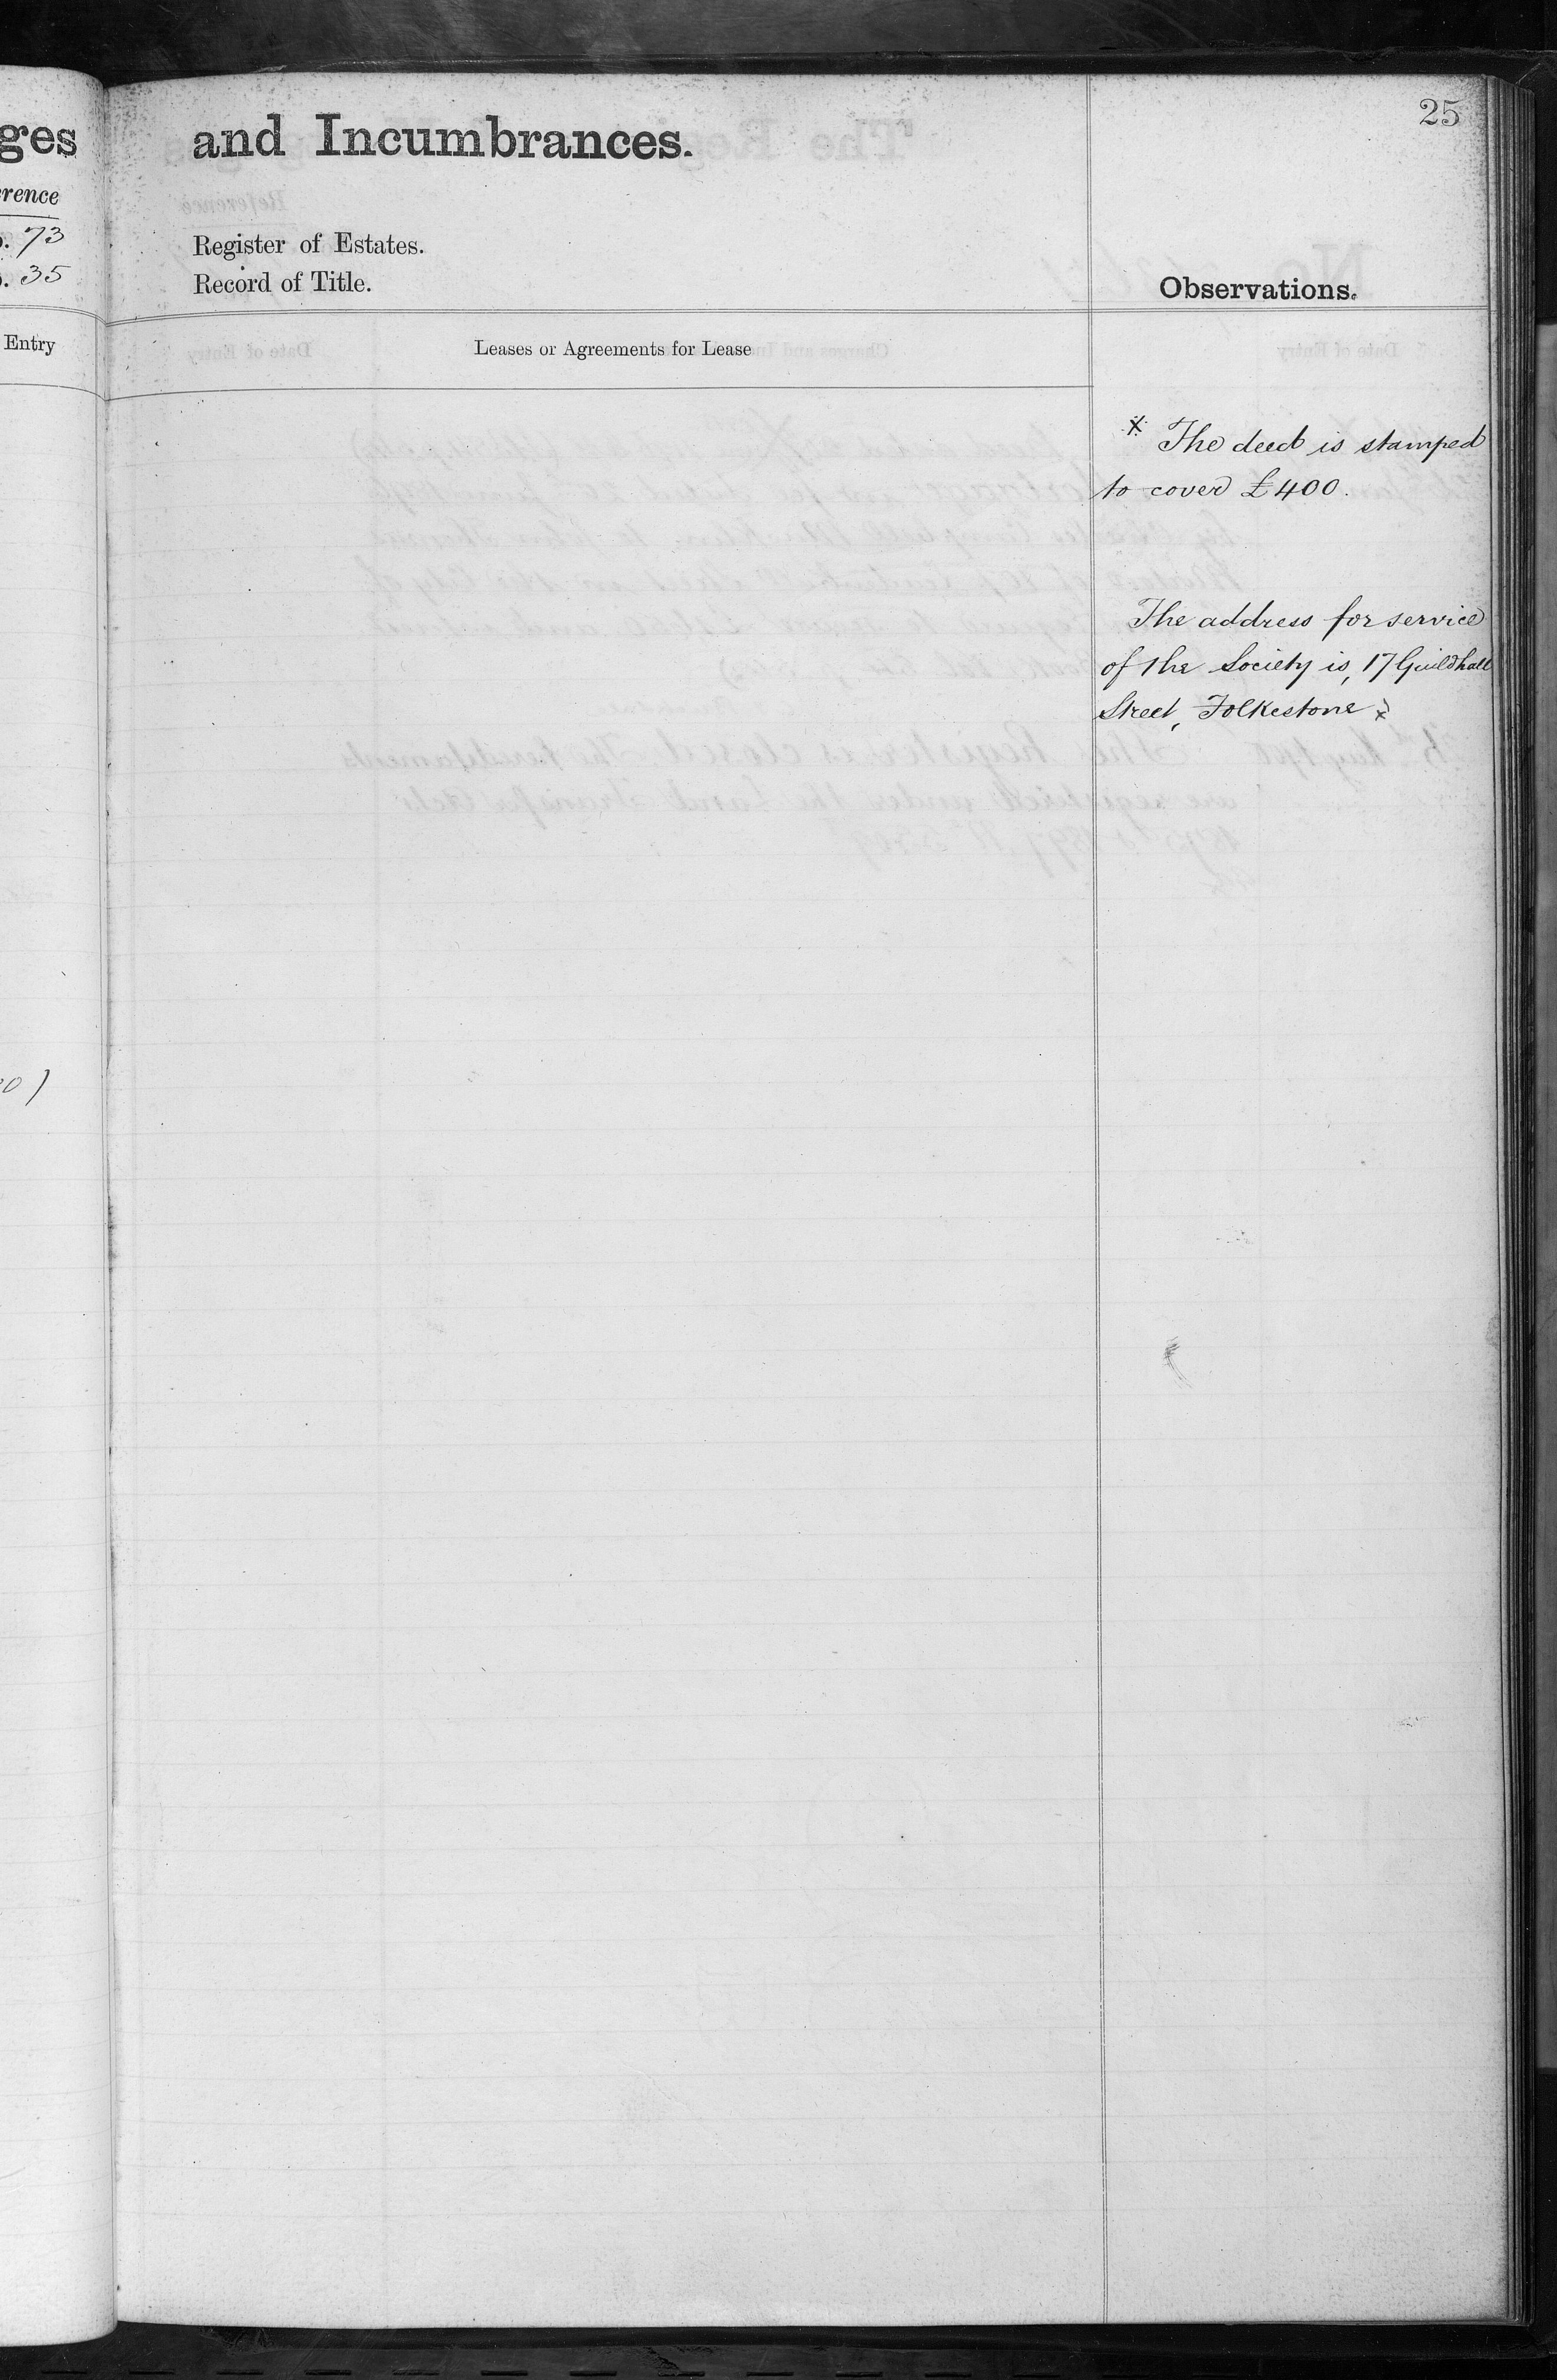 25
ges
and Incumbrances.
rence
73
35
Register of Estates.
Record of Title.
Observations.
Entry
Leases or Agreements for Lease
x The deed is stamped
to cover £400.
The address for service
of the Society is, 17 Guildhall
Street, Folkestone
0)